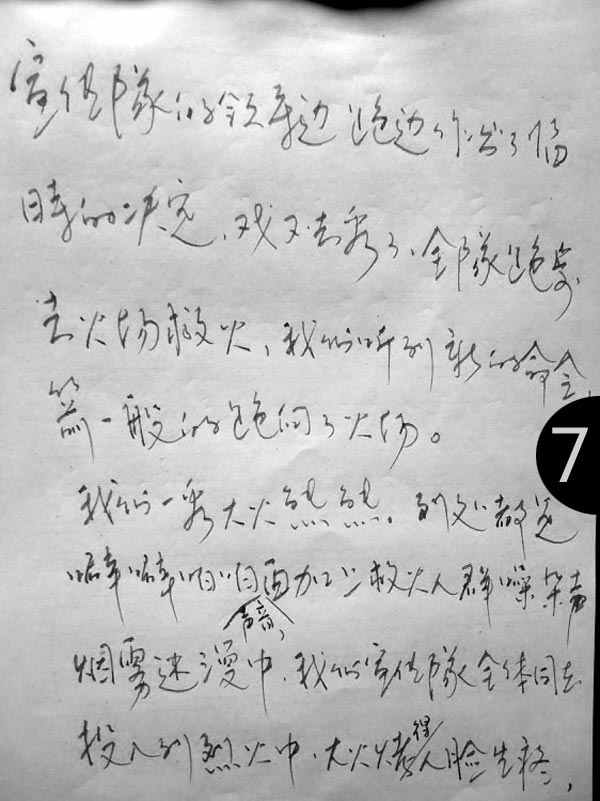 宣传队的领导边跑边作出了临
时的决定、戏不去看了、全队跑步
去火场救火、我们听到新的命令、
箭一般的跑向了火场。
7
我们一看大火熊熊。到处都是
噼噼啪啪声音，加上救火人群噪杂声
烟雾迷漫中、我们宣传队全体同志
投入到烈火中、大火烤得人脸生疼，